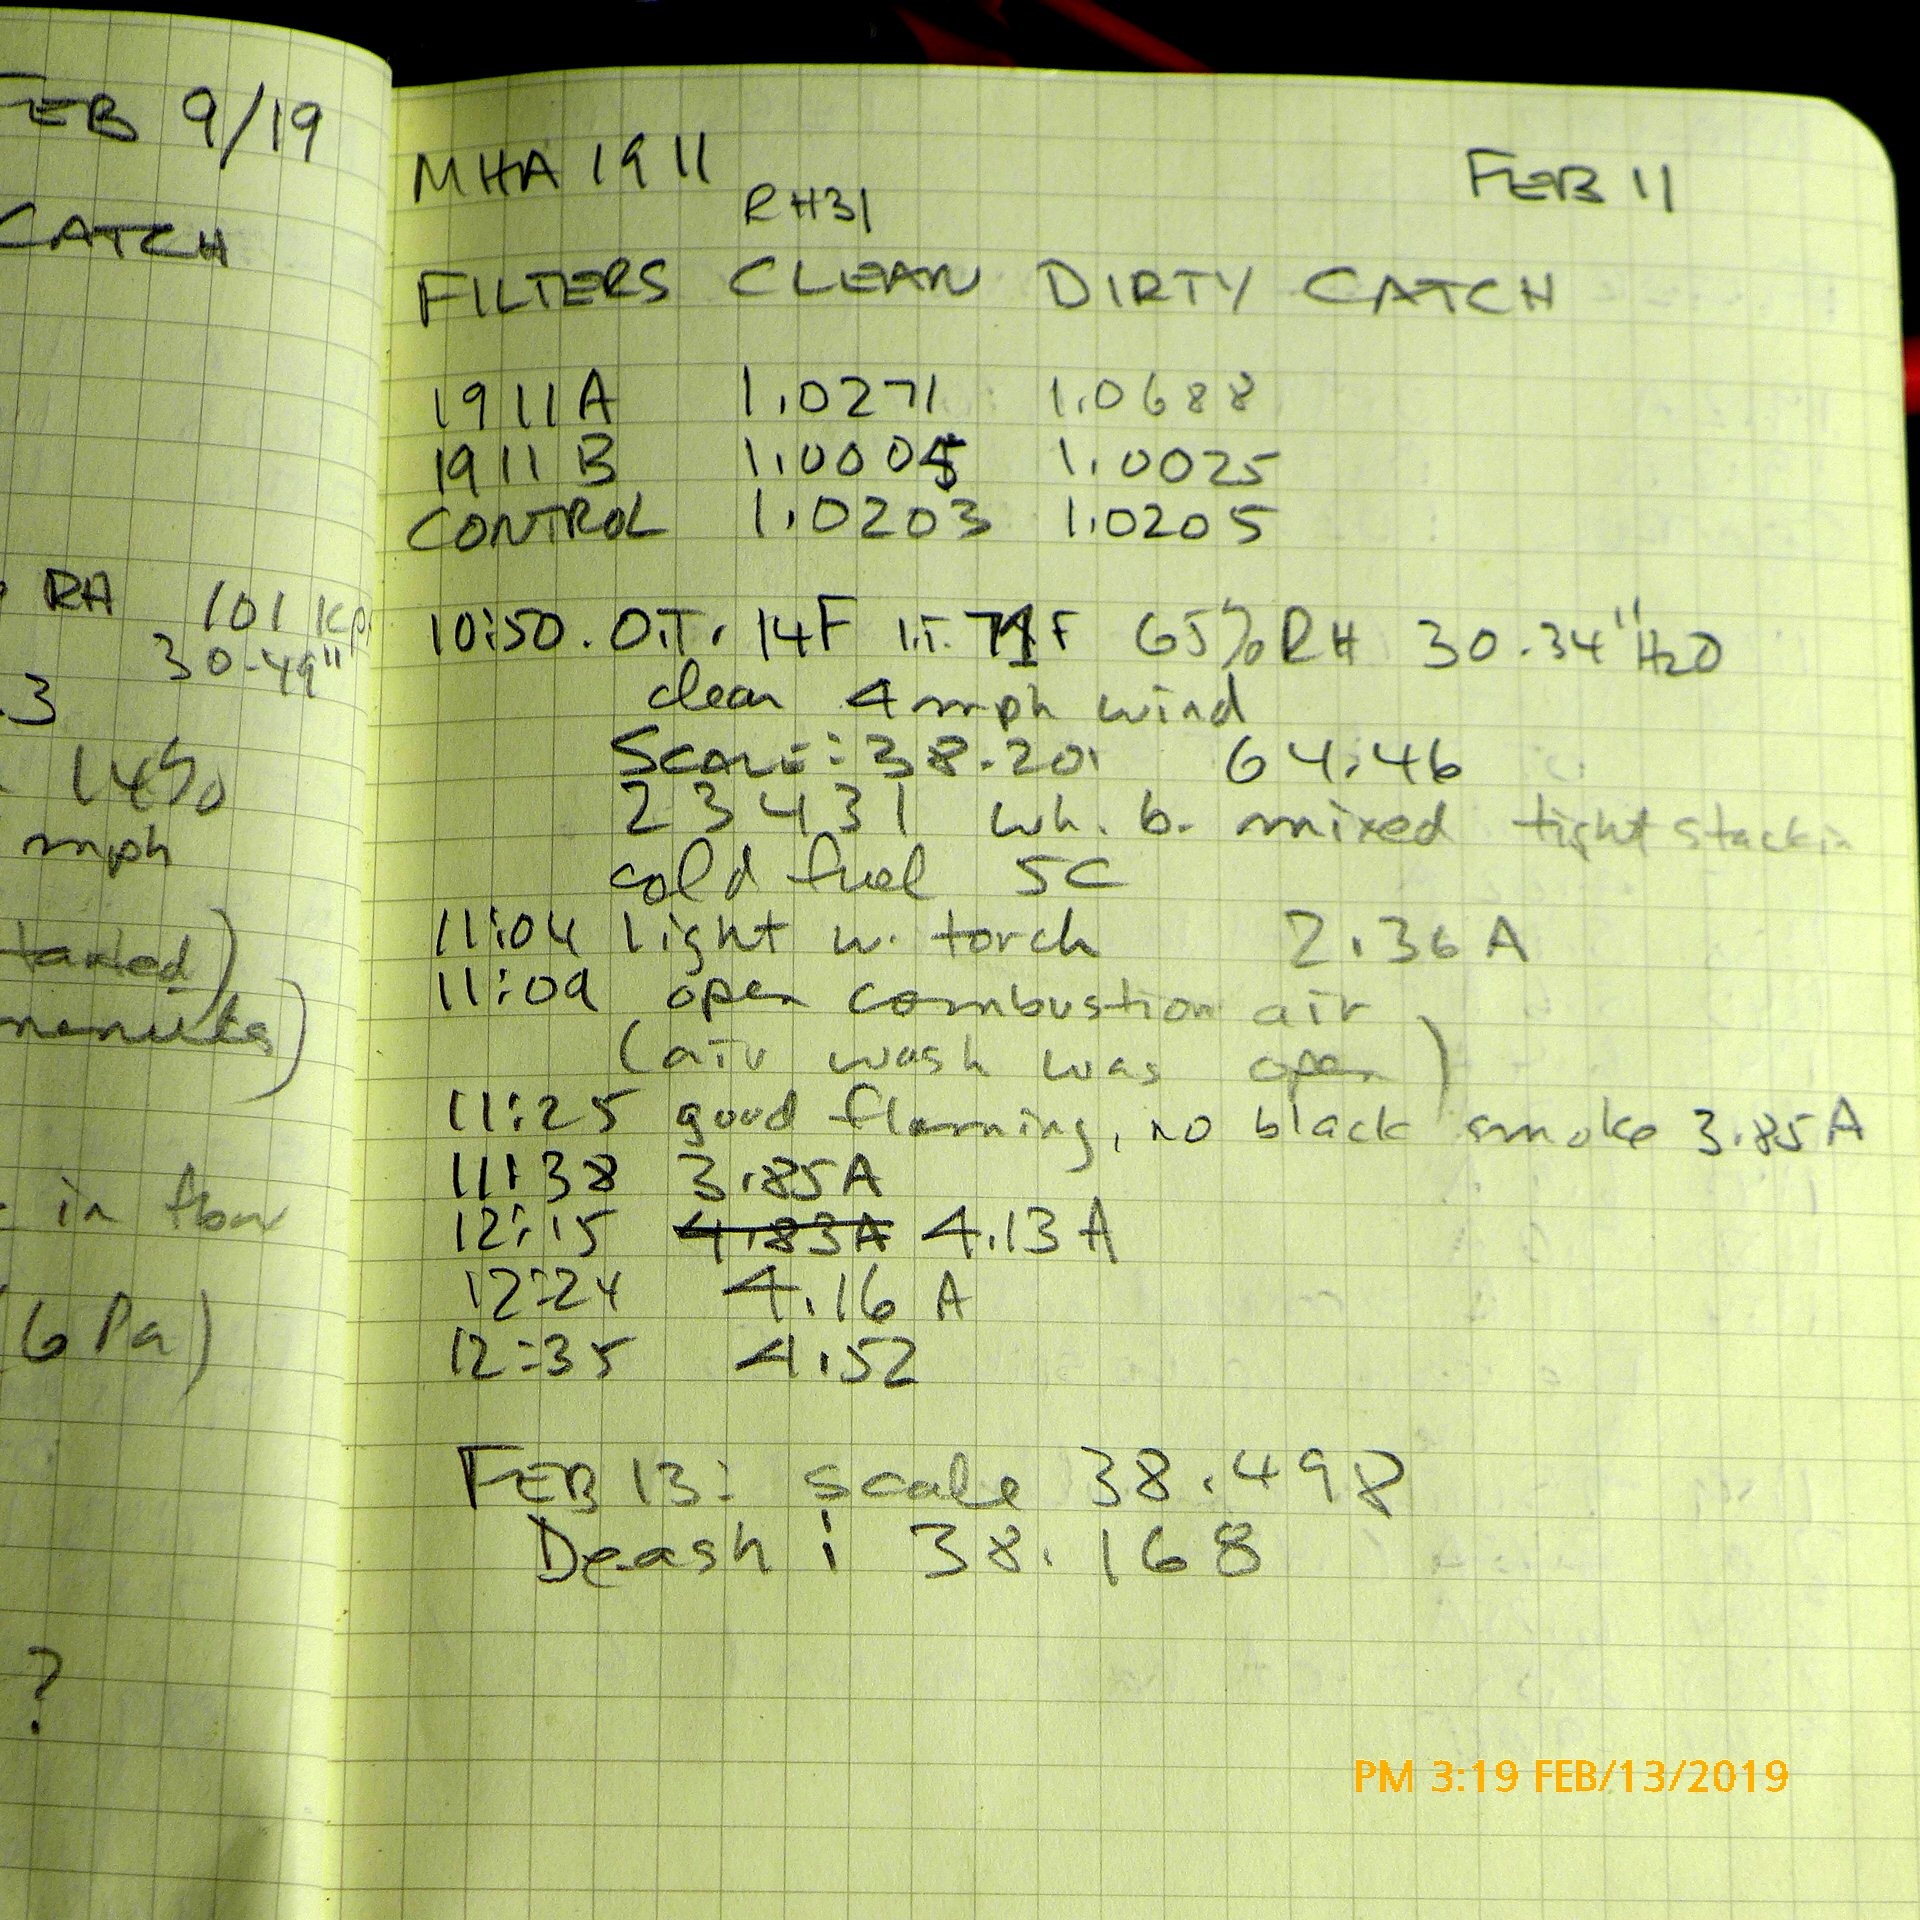 FEB 9/19
CATCH
RH 101 kp
30.49"
.3
1450
mph
in flow
(6 Pa)
?
MHA 1911 FEB 11
RH31
FILTERS CLEAN DIRTY CATCH
1911A 1.0271 1.0688
1911 B 1.0005 1.0025
CONTROL 1.0203 1.0205
10:50. O.T. 14F I.T. 71F 65% RH 30.34" H2O
clear 4 mph wind
SCALE: 38.201 64.46
23431 wh. b. mixed tight stackin
cold fuel 5C
11:04 light w. torch 2.36 A
11:09 open combustion air
(air wash was open)
11:25 good flaming, no black smoke 3.85 A
11:38 3.85A
12:15 4.83A 4.13 A
12:24 4.16 A
12:35 4.52
FEB 13: scale 38.498
Deash: 38.168
PM 3:19 FEB/13/2019